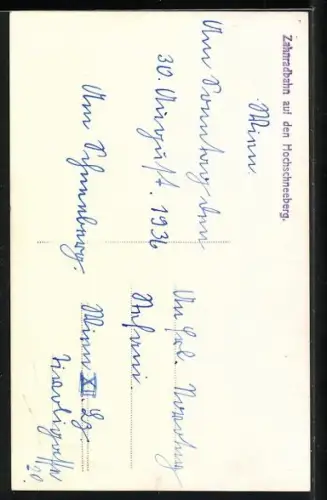 Zahnradbahn auf den Hochschneeberg.
Wien.
Am Sonntag den
30. August. 1936
Am Schneeberg.
An Frl.
Stefani.
Wien XII. Bz.